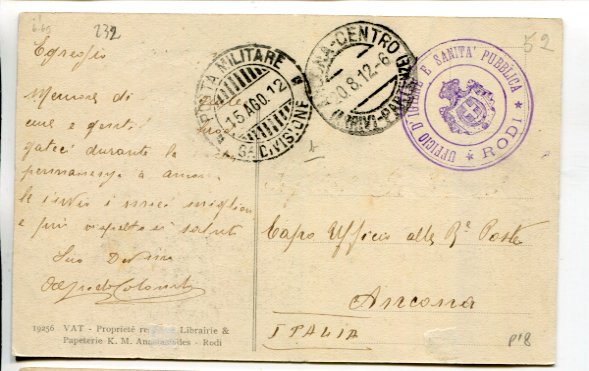 232
52
Egregio
Memore di
cure e genti
gateci durante la
permanenza a
le invio i miei migliori
e più rispettosi saluti
Suo
Alfredo
POSTA MILITARE
15 AGO. 12
6ª DIVISIONE
ANCONA-CENTRO
20.8.12-6
(ARRIVI-PARTENZE)
UFFICIO D'IGIENE E SANITA' PUBBLICA
★ RODI ★
Capo Ufficio alle Rᵉ Poste
Ancona
ITALIA
19256 VAT - Propriété Librairie &
Papeterie K. M. - Rodi
p'8